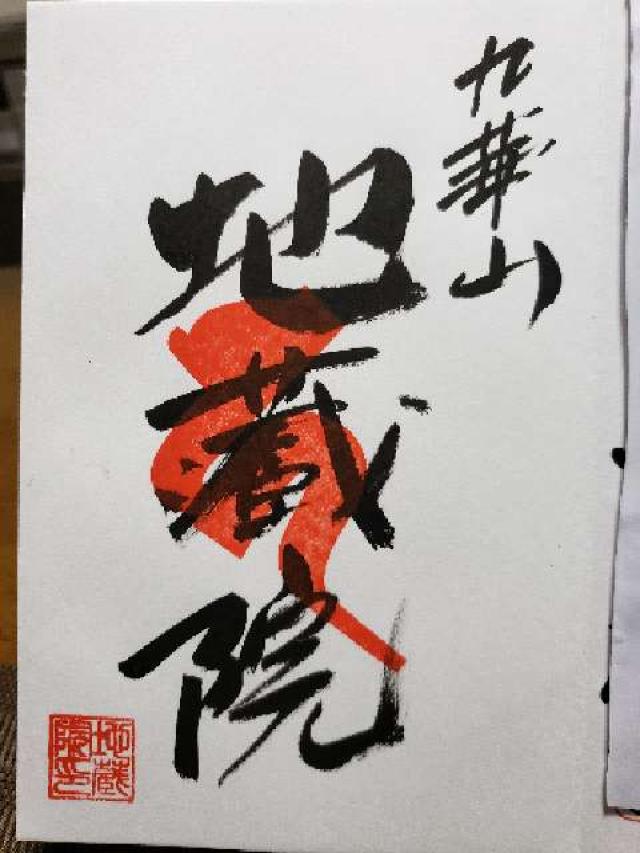 九華山
地蔵院
地蔵院印